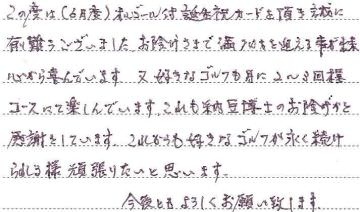 この度は(6月度)オルゴール付誕生祝カードを頂き誠に
有難うございました お陰げさまで満 才を迎える事が出来
心から喜んでいます 又 好きなゴルフも月に2〜3回程
コースにて楽しんでいます、これも納豆博士のお陰げかと
感謝をしています。これからも好きなゴルフが永く続け
られる様 頑張りたいと思います。
今後ともよろしくお願い致します